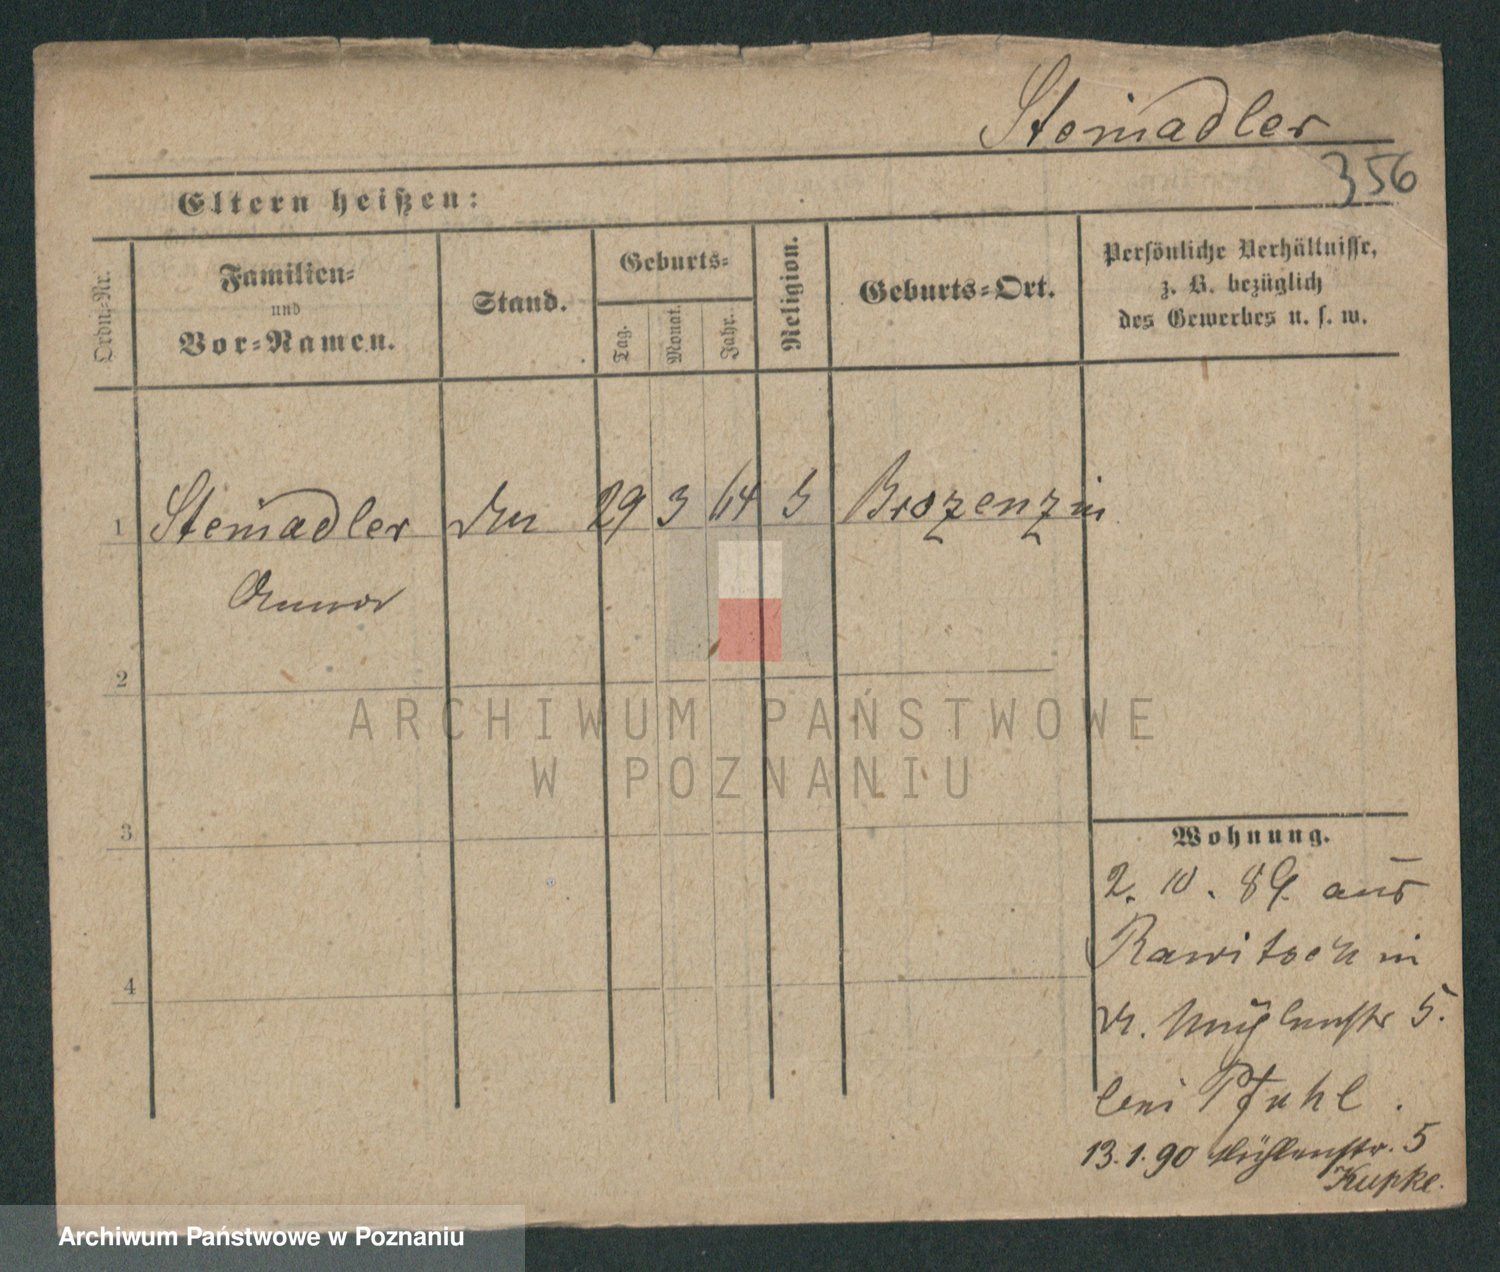 Steinadler
356
Eltern heißen:
Ordn.-Nr.
Familien-
und
Vor-Namen.
Stand.
Geburts-
Tag.
Monat.
Jahr.
Religion.
Geburts-Ort.
Persönliche Verhältnisse,
z. B. bezüglich
des Gewerbes u. s. w.
1 Steinadler 29 3 64 Brozenzin
Anna
2
3
4
Wohnung.
2. 10. 89. aus
Rawitsch in
Mühlenstr 5.
bei Pfuhl.
13.1.90 Mühlenstr. 5
Kupke.
ARCHIWUM PAŃSTWOWE
W POZNANIU
Archiwum Państwowe w Poznaniu